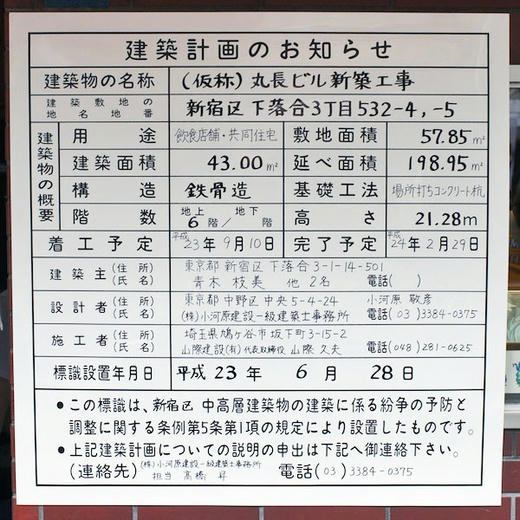 建築計画のお知らせ
建築物の名称 (仮称) 丸長ビル新築工事
建築敷地の地名地番 新宿区下落合3丁目532-4,-5
建築物の概要
用途 飲食店舗・共同住宅 敷地面積 57.85㎡
建築面積 43.00㎡ 延べ面積 198.95㎡
構造 鉄骨造 基礎工法 場所打ちコンクリート杭
階数 地上 6階/ 地下 階 高さ 21.28m
着工予定 平成23年9月10日 完了予定 平成24年2月29日
建築主(住所) 東京都新宿区下落合3-1-14-501
(氏名) 青木枝美 他2名 電話( )
設計者(住所) 東京都中野区中央5-4-24 小河原 敬彦
(氏名) (株)小河原建設一級建築士事務所 電話(03)3384-0375
施工者(住所) 埼玉県鳩ヶ谷市坂下町3-15-2
(氏名) 山際建設(有)代表取締役 山際久夫 電話(048)281-0625
標識設置年月日 平成23年 6月 28日
●この標識は、新宿区 中高層建築物の建築に係る紛争の予防と
調整に関する条例第5条第1項の規定により設置したものです。
●上記建築計画についての説明の申出は下記へ御連絡下さい。
(連絡先) (株)小河原建設一級建築士事務所 電話(03)3384-0375
担当 高橋 昇